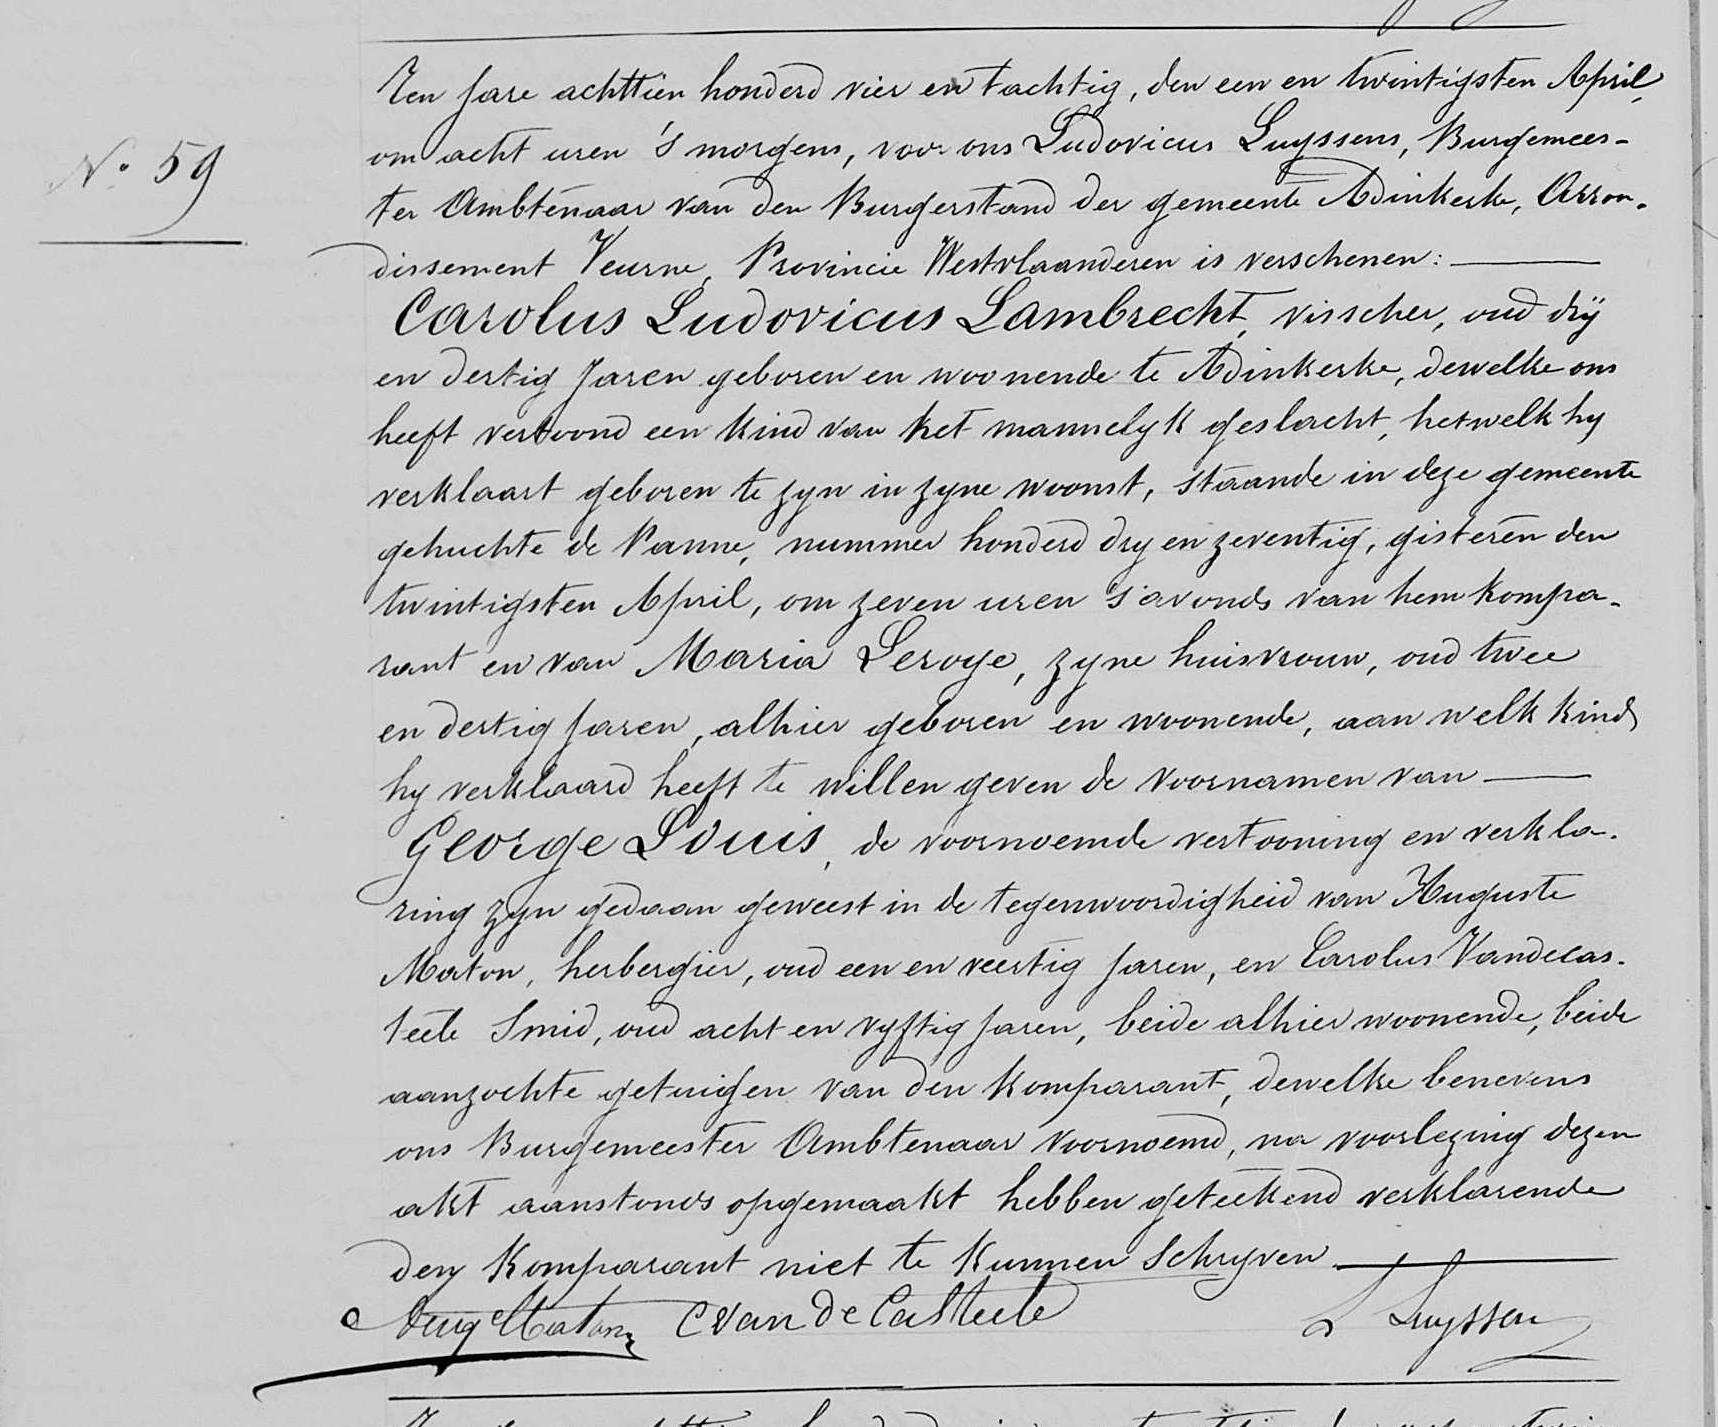 Ten Jare achttien honderd vier en tachtig, den een en twintigsten April,
N.° 59
om acht uren 's morgens, voor ons Ludovicus Luyssens, Burgemees-
ter Ambtenaar van den Burgerstand der gemeente Adinkerke, Arron-
dissement Veurne, Provincie Westvlaanderen is verschenen:
Carolus Ludovicus Lambrecht, visscher, oud dry
en dertig Jaren geboren en woonende te Adinkerke, dewelke ons
heeft vertoond een kind van het mannelyk geslacht, hetwelk hy
verklaart geboren te zyn in zyne woonst, staande in deze gemeente
gehuchte de Panne, nummer honderd dry en zeventig, gisteren den
twintigsten April, om zeven uren 's avonds van hem kompa-
rant en van Maria Leroye, zyne huisvrouw, oud twee
en dertig Jaren, alhier geboren en woonende, aan welk kind
hy verklaard heeft te willen geven de voornamen van
George Louis, de voornoemde vertooning en verkla-
ring zyn gedaan geweest in de tegenwoordigheid van Auguste
Maton, herbergier, oud een en veertig Jaren, en Carolus Vandecas-
teele Smid, oud acht en vyftig Jaren, beide alhier woonende, beide
aanzochte getuigen van den komparant, dewelke benevens
ons Burgemeester Ambtenaar voornoemd, na voorlezing dezen
akt aanstonds opgemaakt hebben geteekend verklarende
den komparant niet te kunnen Schryven
Aug Maton C Van De Casteele L Luyssen